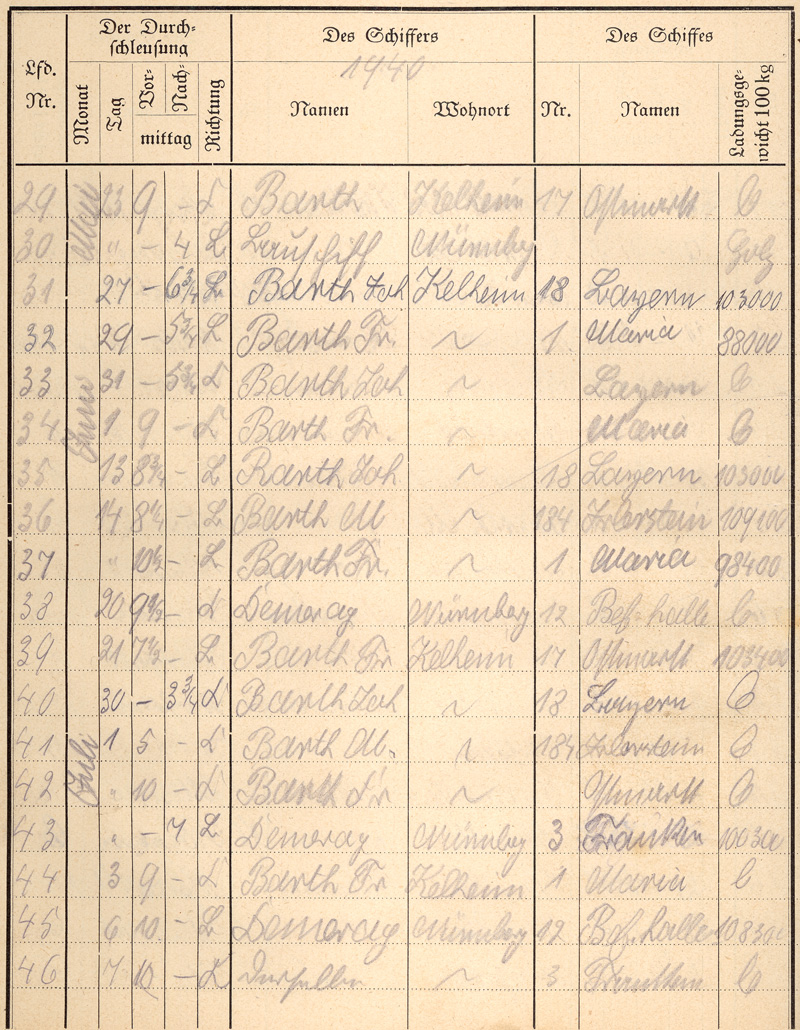 Lfd. Nr.
Der Durch-
schleusung
Monat
Tag
Vor-
Nach-
mittag
Richtung
Des Schiffers
1940
Namen
Wohnort
Des Schiffes
Nr.
Namen
Ladungsge-
wicht 100 kg
29 Mai 23 9 – Barth Kelheim 17 Ostmark
30 " – 4 L Nürnberg
31 27 – 6 3/4 L Barth Joh Kelheim 18 Bayern 103000
32 29 – L Barth Fr. ~ 1 Maria 88000
33 31 – Barth Joh ~ Bayern
34 Juni 1 9 – Barth Fr. ~ Maria
35 13 – L Barth Joh ~ 18 Bayern 103000
36 14 – L Barth M ~ 184 109100
37 " 10½ – L Barth Fr. ~ 1 Maria 98400
38 20 9½ – Demerag Nürnberg 12 Bef. halle
39 21 7½ – L Barth Fr Kelheim 17 Ostmark 103400
40 30 – 3 3/4 Barth Joh ~ 18 Bayern
41 Juli 1 5 – Barth M. ~ 184
42 " 10 – Barth Fr ~ Ostmark
43 " – 7 L Demerag Nürnberg 3 Franken 100300
44 3 9 – Barth Fr Kelheim 1 Maria
45 6 10 – L Demerag Nürnberg 12 Bef. halle 108300
46 7 10 – derselbe ~ 3 Franken